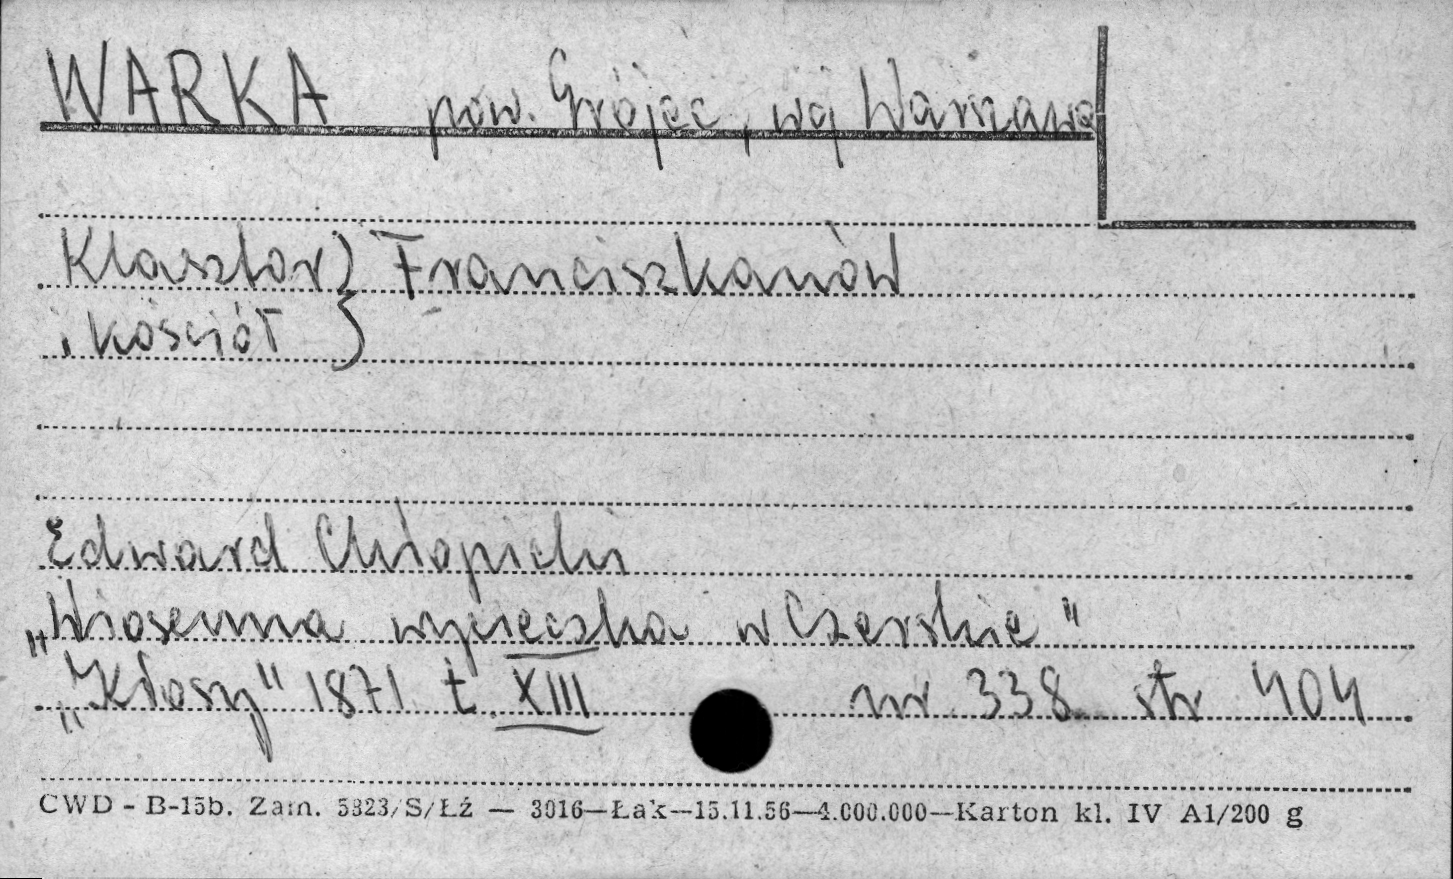 WARKA pow. Grójec, woj Warszawa
Klasztor } Franciszkanów
i kościół }
Edward Chłopicki
„Wiosenna wycieczka w Czerskie"
„Kłosy" 1871 t. XIII nr 338 str 404
CWD - B-15b. Zam. 5823/S/Łź — 3016—Łak—15.11.56—4.000.000—Karton kl. IV A1/200 g